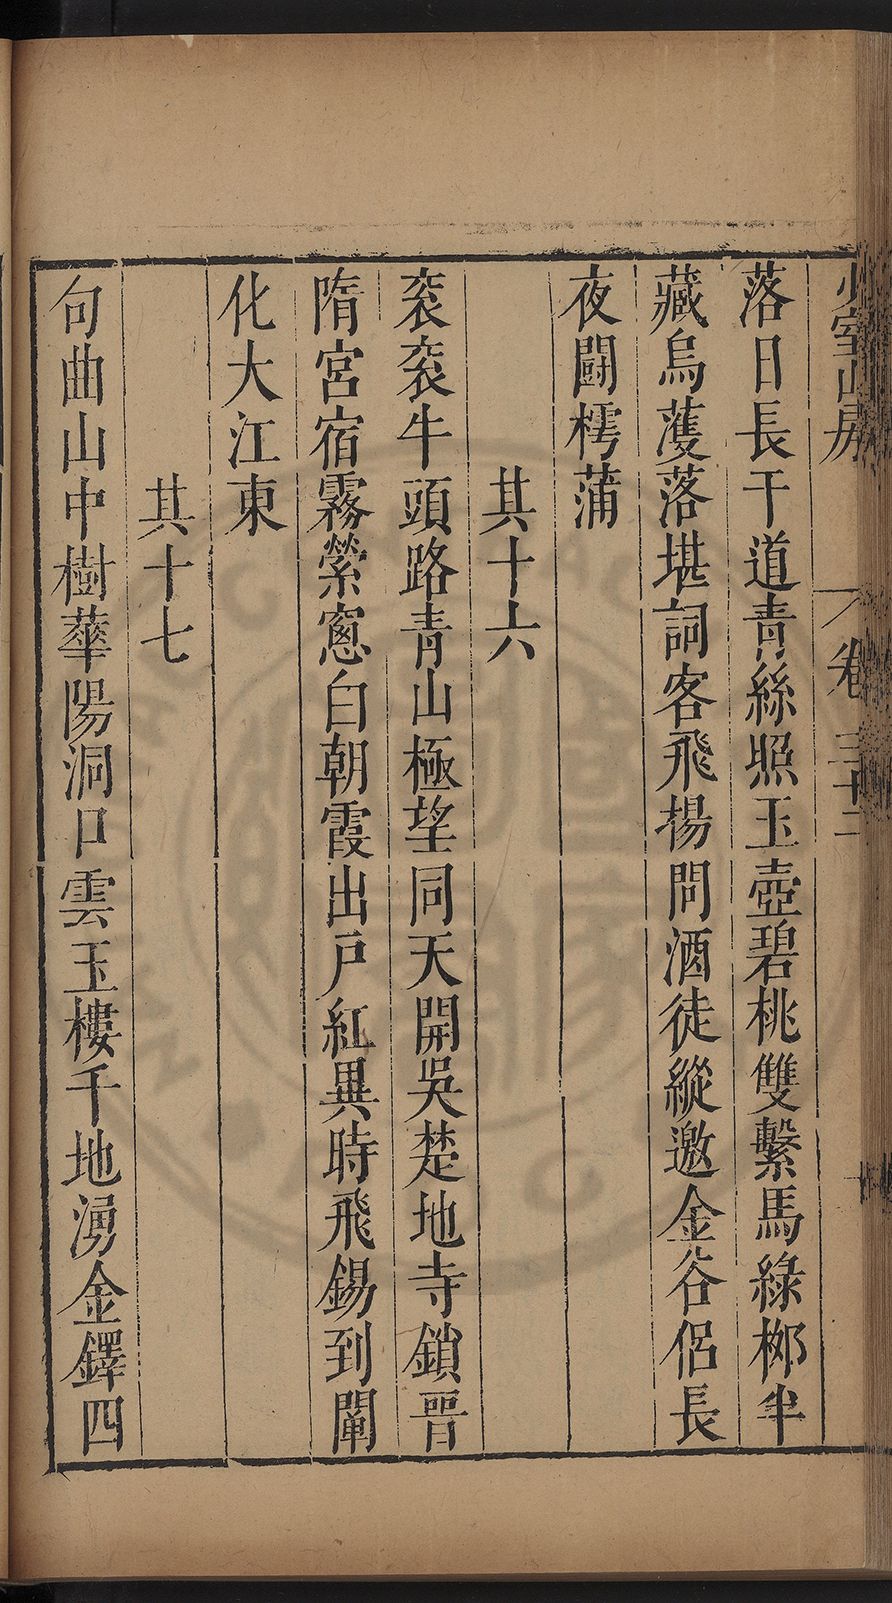 少室山房
卷三十二
落日長干道青絲照玉壺碧桃雙繫馬綠桞半
藏烏蒦落堪詞客飛揚問酒徒縱邀金谷侶長
夜闘樗蒲
其十六
袞袞牛頭路青山極望同天開吳楚地寺鎖晋
隋宮宿霧縈窻白朝霞出戸紅異時飛錫到闡
化大江東
其十七
句曲山中樹華陽洞口雲玉樓千地湧金鐸四